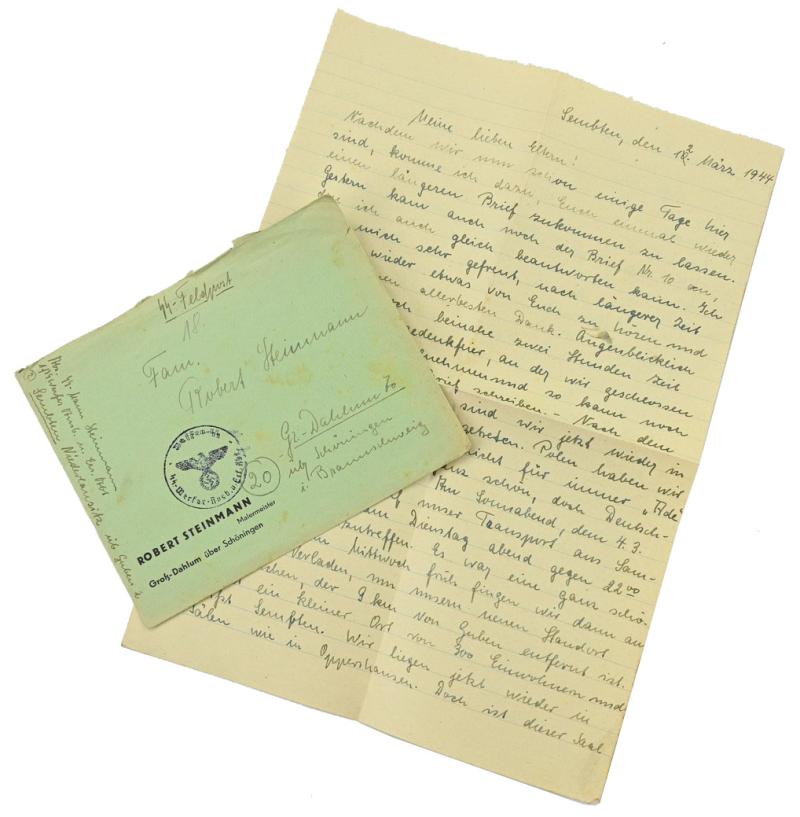 Sembten, den 12. März 1944
Meine lieben Eltern!
Nachdem wir nun schon einige Tage hier
sind, komme ich dazu, Euch einmal wieder
einen längeren Brief zukommen zu lassen.
Gestern kam auch noch der Brief Nr. 10 an,
ich auch gleich beantworten kann. Ich
mich sehr gefreut, nach längerer Zeit
wieder etwas von Euch zu hören und
allerbesten Dank. Augenblicklich
beinahe zwei Stunden Zeit
an der wir geschlossen
und so kann noch
Brief schreiben. - Nach dem
sind wir jetzt wieder in
getreten. Polen haben wir
nicht für immer "Ade
ganz schön, doch Deutsch-
Am Sonnabend, dem 4.3.
unser Transport aus Sam-
am Dienstag abend gegen 22 00
zutreffen. Es war eine ganz schö-
Mittwoch früh fingen wir dann an
Verladen, um unsern neuen Standort
der 9 km von Guben entfernt ist.
ein kleiner Ort von 300 Einwohnern und
Sembten. Wir liegen jetzt wieder in
Sälen wie in Oppershausen. Doch ist dieser Saal
SS-Feldpost
18.
Fam.
Robert Steinmann
Gr-Dahlum 70
üb/Schöningen
i/Braunschweig
20
Waffen-SS
ROBERT STEINMANN
Malermeister
Groß-Dahlum über Schöningen
Abs. SS-Mann Steinmann
Sembten Niederlausitz üb Guben 2